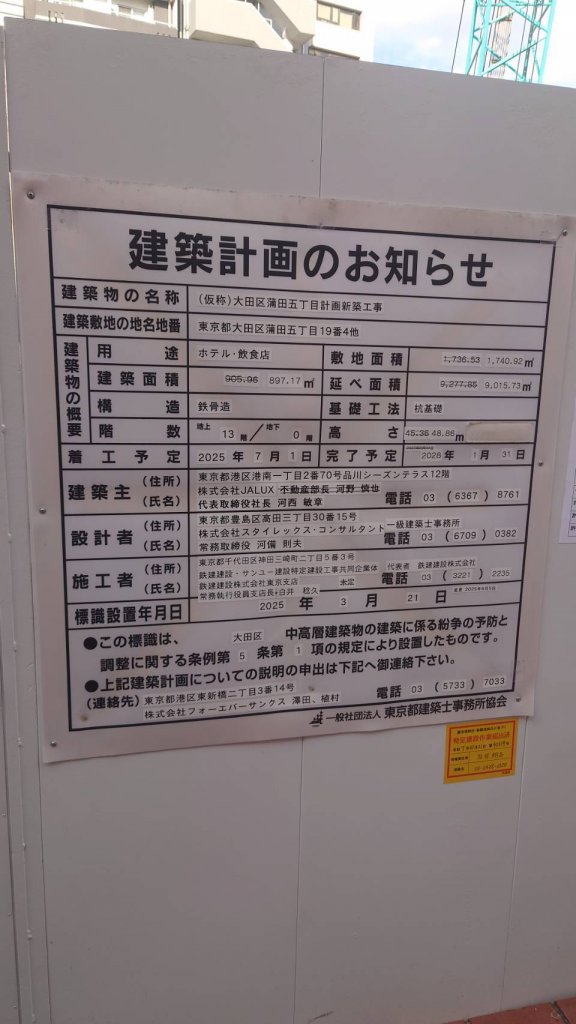 建築計画のお知らせ
建築物の名称 (仮称)大田区蒲田五丁目計画新築工事
建築敷地の地名地番 東京都大田区蒲田五丁目19番4他
建築物の概要
用途 ホテル・飲食店 敷地面積 1,736.53 1,740.92㎡
建築面積 905.96 897.17㎡ 延べ面積 9,277.85 9,015.73㎡
構造 鉄骨造 基礎工法 杭基礎
階数 地上 13 階/地下 0 階 高さ 45.35 48.86m
着工予定 2025年 7月 1日 完了予定 2028年 1月 31日
建築主 (住所) 東京都港区港南一丁目2番70号品川シーズンテラス12階
(氏名) 株式会社JALUX 不動産部長 河野 慎也
代表取締役社長 河西 敏章 電話 03 (6367) 8761
設計者 (住所) 東京都豊島区高田三丁目30番15号
(氏名) 株式会社スタイレックス・コンサルタント 一級建築士事務所
常務取締役 河備 則夫 電話 03 (6709) 0382
施工者 (住所) 東京都千代田区神田三崎町二丁目5番3号
(氏名) 鉄建建設・サンユー建設特定建設工事共同企業体 代表者 鉄建建設株式会社
鉄建建設株式会社東京支店 未定 電話 03 (3221) 2235
常務執行役員支店長 白井 稔久
標識設置年月日 2025 年 3 月 21 日
●この標識は、大田区 中高層建築物の建築に係る紛争の予防と
調整に関する条例第 5 条第 1 項の規定により設置したものです。
●上記建築計画についての説明の申出は下記へ御連絡下さい。
(連絡先) 東京都港区東新橋二丁目3番14号 電話 03 (5733) 7033
株式会社フォーエバーサンクス 澤田、植村
一般社団法人 東京都建築士事務所協会
特定建設作業届出済